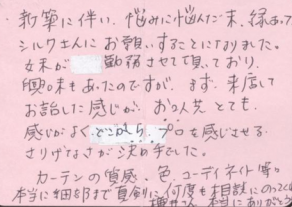 ・新築に伴い、悩みに悩んだ末、縁あって
シルクさんにお願いすることになりました。
女末が 勤務させて頂いており、
興味もあったのですが、まず、来店して
お話した感じが、お2人共とても
感じがよく、どこかしら、プロを感じさせる
さりげなさが決め手でした。
カーテンの質感、色、コーディネイト等。
本当に細部まで真剣に何度も相談にのって
さん、本当にありがとう